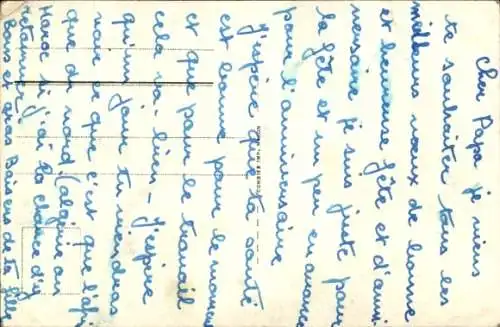 Cher Papa je viens
te souhaiter tous les
meilleurs vœux de bonne
et heureuse fête et d'anni
versaire je suis juste pour
la fête et un peu en avance
pour l'anniversaire
J'espère que ta santé
est bonne pour le moment
et que pour le travail
cela va bien - j'espère
qu'un jour tu viendras
voir ce que c'est que l'afri
que du nord. (algérie ou
Maroc si j'ai la chance d'y
retourner.
Bons et gros Baisers de ta fille